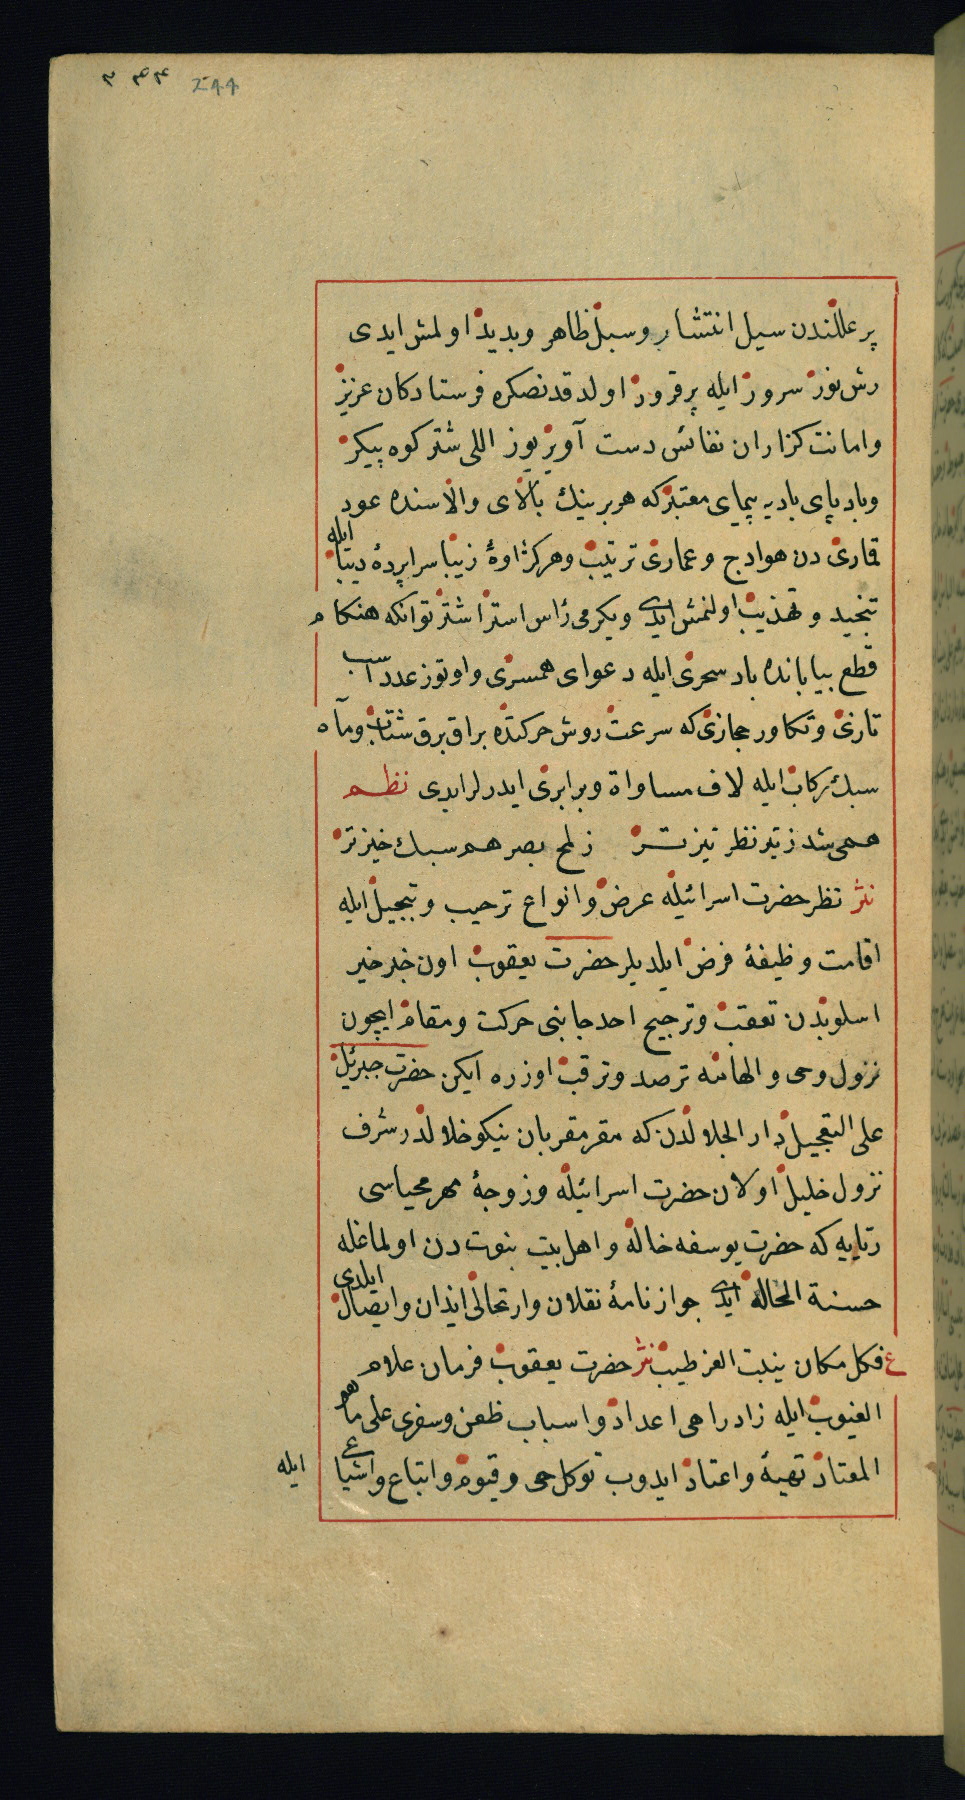 ٢٤٤ 244
پر عللندن سیل انتشار و سبل ظاهر و بدید اولمش ایدی
رش نور سرور ایله پرقرور اولدقدنصكره فرستادكان عزیز
وامانت كزاران نفائس دست آویز یوز اللی شتر كوه پیكر
وبادپای بادیه پیمای معتبر كه هربرینك بالای والاسنده عود
قماری دن هوادج و عماری ترتیب وهر كژاوۀ زیبا سراپردۀ دیبا ایله
تنجید و تهذیب اولنمش ایدی ویكرمی رأس استر اشتر توانكه هنكام
قطع بیاباننده باد سحری ایله دعوای همسری واوتوز عدد اسب
تازی وتكاور حجازی كه سرعت روش حركتده براق برق شتاب وماه
سبك ركاب ایله لاف مساواة وبرابری ایدرلر ایدی نظم
همی شد ز تیر نظر تیز تر ز لمح بصر هم سبك خیز تر
نثر نظر حضرت اسرائیله عرض وانواع ترحیب وتبجیل ایله
اقامت وظیفۀ فرض ایلدیلر حضرت یعقوب اون خبر خیر
اسلوبدن تعقب وترجیح احد جانبی حركت ومقام ایچون
نزول وحی والهامه ترصد وترقب اوزره ایكن حضرت جبرئیل
علی التعجیل دار الجلالدن كه مقر مقربان نیكو خلالدر شرف
نزول خلیل اولان حضرت اسرائیله وزوجۀ مهر محیاسی
كه حضرت یوسفه خاله واهل بیت نبوت دن اولماغله
حسنة الحاله ایدی جواز نامۀ نقلان وارتحالی ایذان وایصال ایلدی
ع فكل مكان ینبت العز طیب نثر حضرت یعقوب فرمان علام
الغیوب ایله زاد راهی اعداد واسباب ظعن وسفری علی ماهو
المعتاد تهیۀ واعتاد ایدوب توكل حی وقیوم واتباع واشیاع
ایله